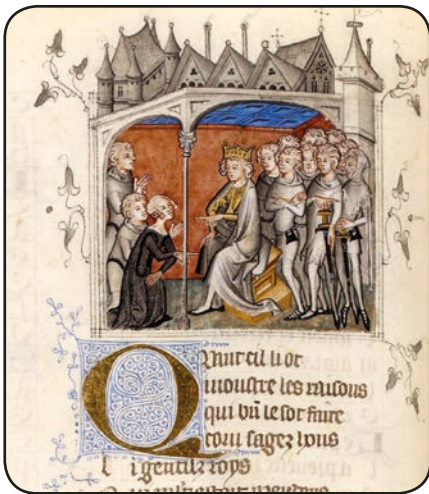 Quant cil li ot
moustre les raisons
qui bñ le sot faire
com sagez hons
l i gentilz roys